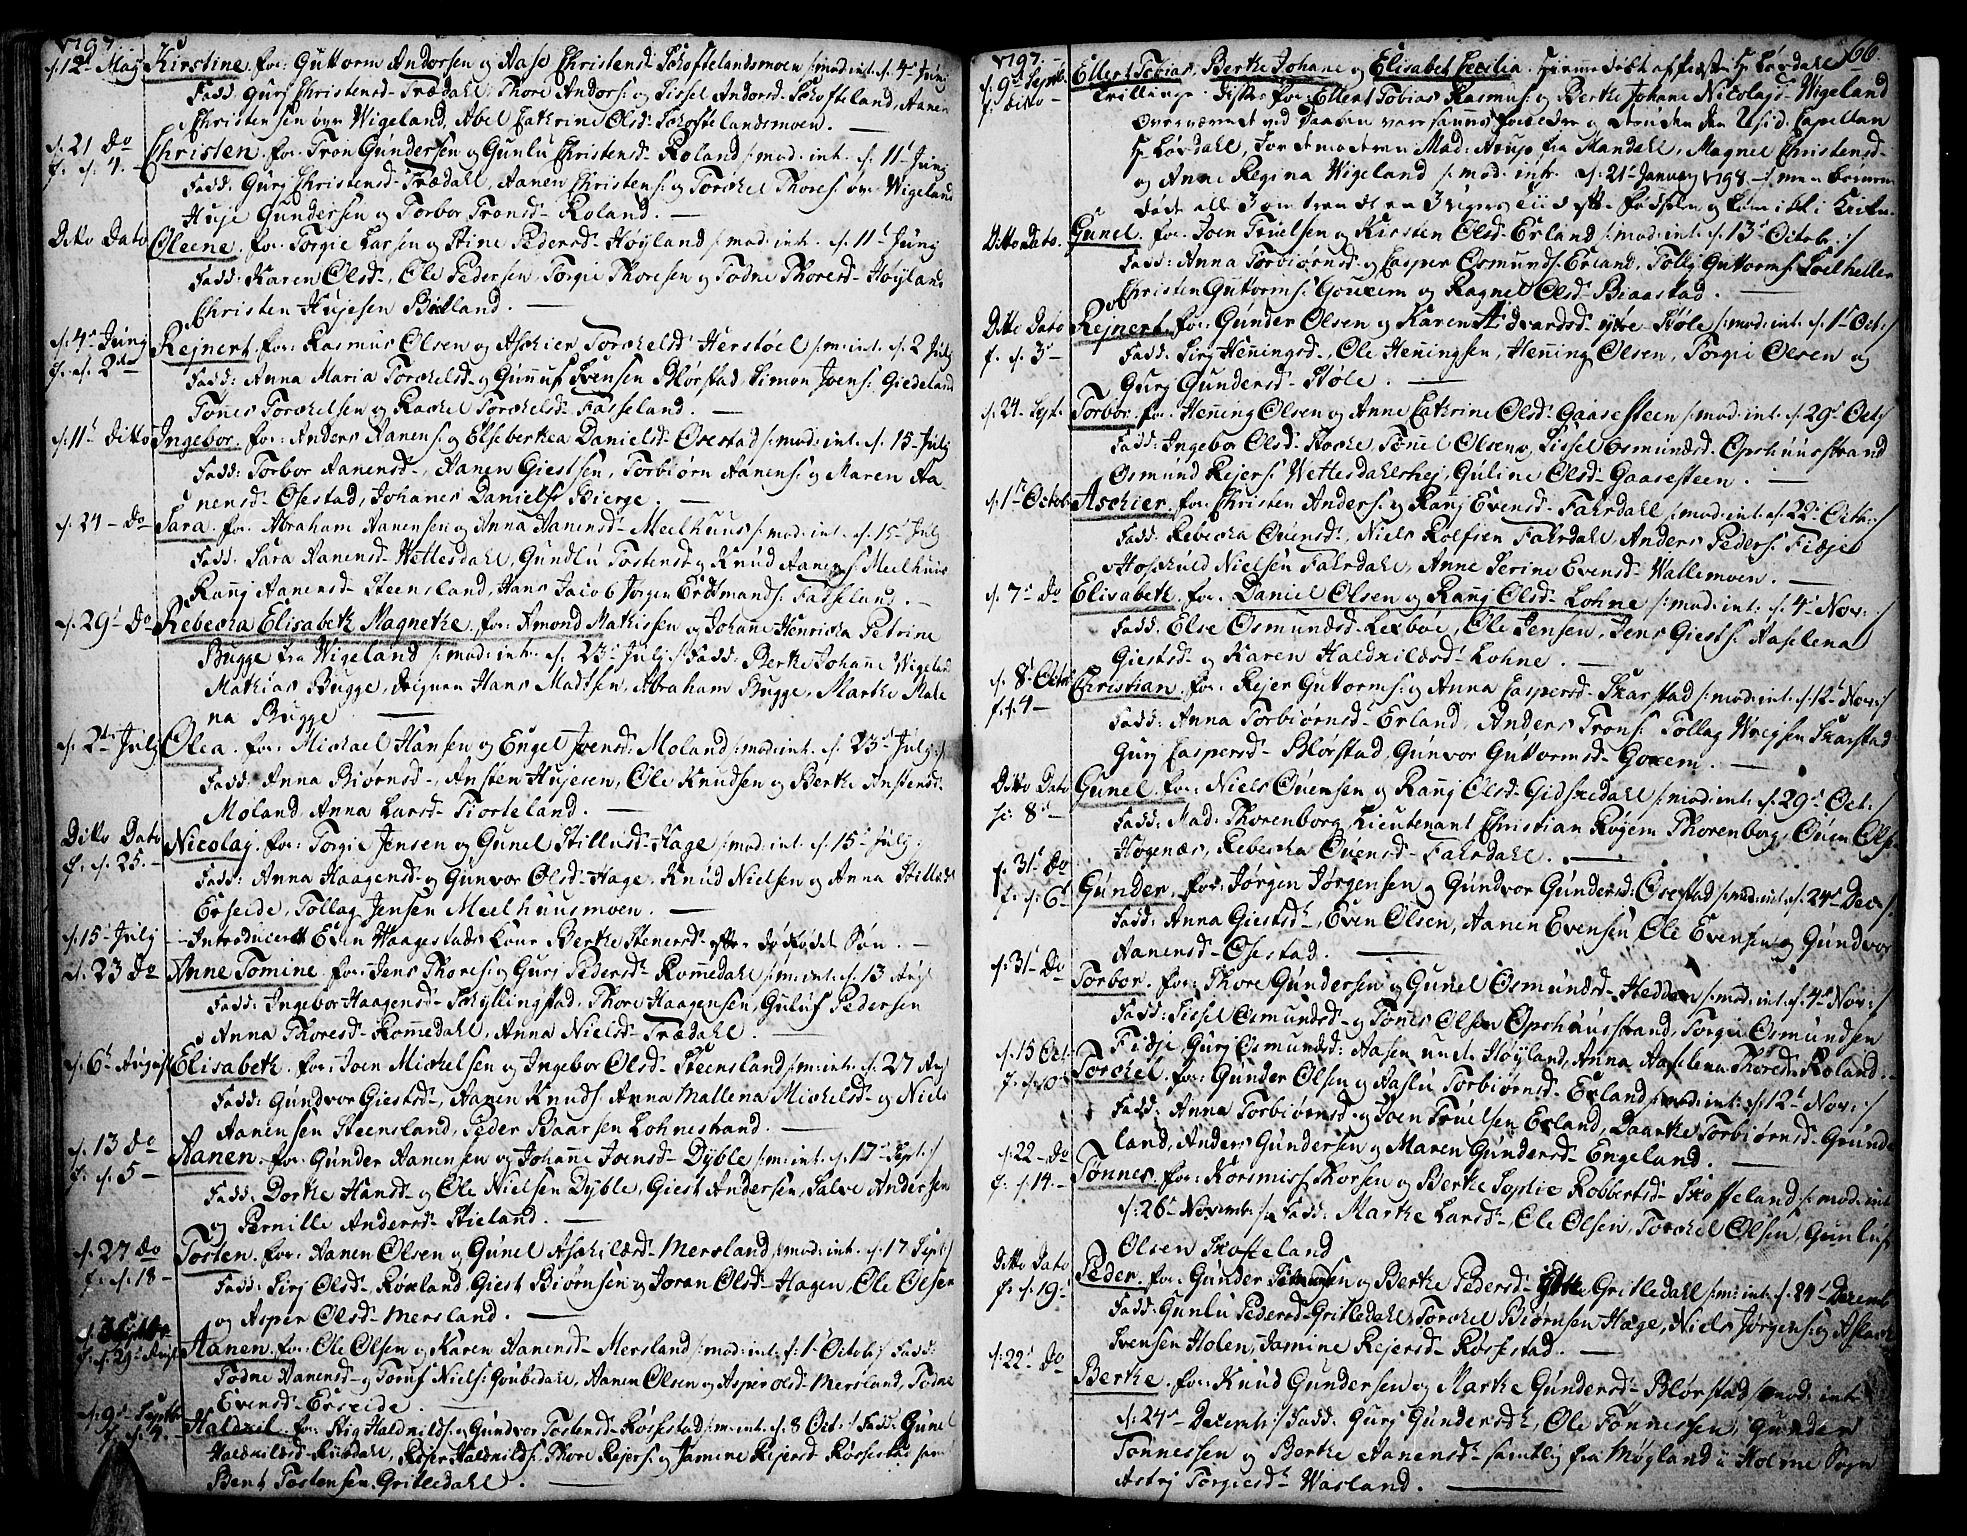 1797.
d. 12t May Kirstine. for: Guttorm Andersen og Aase Christensd. Schoftelandsmoen /: mod: int. d. 4de Junij
Fadd: Gurj Christensd. Trædahl, Thore Anders: og Sissel Andersd. Schofteland, Aanen
Christensen øvr Wigeland, Abel Cathrine Olsd. Schoftelandsmoen. —
d. 21 do Christen. for: Tron Gundersen og Gunlu Christensd. Roland /: mod: int. d. 11t Junij
f. d. 4. — Fadd: Gurj Christensd. Trædahl, Aanen Christens: og Torkel Thores: øvr Wigeland
Huje Gundersen og Torbor Tronsd. Roland. —
Ditto Dato Oleene. for: Torgie Larsen og Stine Pedersd. Høyland /: mod: int. d. 11t Junij
Fadd: Karen Olsd., Ole Pedersen, Torgie Thoresen og Todne Thoresd. Høyland
Christen Hujesen Birkland. —
d. 4de Junij Rejnert. for: Rasmus Olsen og Aschier Torkelsd. Herstøel /: m: int. d. 2 Julj
f. d. 2den Fadd: Anna Maria Torkelsd. og Gunuf Svensen Blørstad, Simon Joens: Giedeland
Tønes Torkelsen og Rackel Torkelsd. Fasseland. —
d. 11t Ditto Ingebor. for: Anders Aanens: og Elseberthea Danielsd. Osestad /: mod: int. d. 15 Julj
Fadd: Torbor Aanensd., Aanen Giestsen, Torbiørn Aanens: og Maren Aa
nensd. Osestad, Johanes Daniels: Bierge. —
d. 24 — do Sara. for: Abraham Aanensen og Anna Aanensd. Meelhuus /: mod: int. d. 15t Julj
Fadd: Sara Aanensd. Wettesdahl, Gundlu Tostensd. og Knud Aanens: Meelhuus
Rang Aanensd. Steensland, Hans Jacob Jørgen Erdmands: Fasseland. —
d. 29t do Rebecka Elisabeth Magnethe. for: Amond Mathissen og Johane Henricka Petrine
Bugge fra Wigeland /: mod: int. d. 23: Julj :/ Fadd: Berthe Johane Wigeland
Mathias Bugge, Hans Madtsen, Abraham Bugge, Marthe Male
na Bugge —
d. 2den Julj Olea. for: Michael Hansen og Engel Joensd. Moland /: mod: int. d. 23d Julj :/
Fadd: Anna Biørnsd., Ansten Hujesen, Ole Knudsen og Berthe Anstensd.
Moland, Anna Larsd. Fiorteland. —
Ditto Dato Nicolaj. for: Torgie Jensen og Gunel Stillufsd. Hage /: mod: int. d. 15t Julj
f. d. 25. — Fadd: Anna Haagensd. og Gunvor Olsd. Hage, Knud Nielsen og Anna Stillufsd
Erseide, Tollag Jensen Meelhuusmoen. —
d. 15t Julj Introduceret Even Haagestads Kone Berthe Stenersd. efter dødfødd Søn. —
d. 23 do Anne Tomine. for: Jens Thores: og Gurj Pedersd. Romedahl /: m: int. d. 13 Aug
Fadd: Ingebor Haagensd. Schyllingstad, Thore Haagensen, Guluf Pedersen
Anna Thoresd. Romedahl, Anna Nielsd. Trædahl. —
d. 6t August Elisabeth. for: Joen Michelsen og Ingebor Olsd. Steensland /: m: int. d. 27 Aug
Fadd: Gundvor Giestsd., Aanen Knuds: Anna Mallena Michelsd. og Niels
Aanensen Steensland, Peder Baarsen Lohnestrand. —
d. 13 do Aanen. for: Gunder Aanensen og Johane Joensd. Dyble /: m: int. d. 17t Sept :/
f. d. 5 — Fadd: Dorthe Hansd. og Ole Nielsen Dyble, Giest Andersen, Salve Andersen
og Pernille Andersd. Stieland. —
d. 27 do Tosten. for: Aanen Olsen og Gunel Aschildsd. Mersland /: mod: int. d. 17 Sept :/
f. d. 18 — Fadd: Sirj Olsd. Røxland, Giest Biørnsen og Joran Olsd. Hagen, Ole Olsen
og Asper Olsd. Mersland. —
f. d. 29: Aug Aanen. for: Ole Olsen og Karen Aanensd. Mersland /: mod: int. d. 1t Octobr / Fadd:
Todne Aanensd. og Toruf Niels: Goubedahl, Aanen Olsen og Asper Olsd. Mersland, Todne
Evensd. Erseide. —
d. 9d Septbr Haldkil. for: Stig Haldkilds: og Gundvor Tostensd. Røssestad /: m: int. d. 8 Oct :/ Fadd: Gunel
f. d. 4. Haldkildsd. Risdahl, Rejer Haldkilds: Thore Rejers: og Jamine Rejersd. Røssestad samt
Bent Tostensen Gritledahl. —
1797. — 66.
d. 9d Septbr Ellert Tobias, Berthe Johane og Elisabet Cecilia. hjemedøbt af Præsten Hr Løvdahl
f. ditto — Trillinge. Disse for: Ellert Tobias Rasmus: og Berthe Johane Nicolajsd. Wigeland
overværet ved Daaben vare samme Forældre og den Capellan
Hr Løvdahl, Jordemoderen Mad: Arup fra Mandahl, Magnel Christensd.
og Anne Regina Wigeland /: mod: intr. d. 21t January 1798. — /: men Børnene
døde alle 3 omtrent en 3 ugers tiid efter Fødselen og kom ikke i Kirken.
Ditto Dato. Gunel. for: Joen Truelsen og Kirsten Olsd. Erland /: mod: int: d. 13t Octobr. :/
Fadd: Anna Torbiørnsd. og Casper Osmunds: Erland, Tollj Guttorms: Loelheller
Christen Guttorms: Goxem og Ragnel Olsd. Biaastad. —
Ditto Dato Rejnert. for: Gunder Olsen og Karen Advardsd. ytre Støle /: mod: int: d. 1t Oct :/
f. d. 3d — Fadd: Sirj Heningsd., Ole Heningsen, Hening Olsen, Torgie Olsen og
Gurj Gundersd. Støle. —
d. 24. Sept. Torbor. for: Hening Olsen og Anne Cathrine Olsd. Gaasesteen /: mod: int. d. 29d Oct :/
Fadd: Ingebor Olsd. Stocke, Tønnel Olsen, Sissel Osmundsd. Opshuusstrand
Osmund Rejers: Wettesdahlshej, Guline Olsd. Gaasesteen. —
d. 1ste Octob Aschier. for: Christen Anders: og Rang Evensd. Fahrdahl /: mod: int: d. 22d Octb: :/
Fadd: Rebecka Ovensd., Niels Rolfsen Fahrdahl, Anders Peders: Fidje
Hoskuld Nielsen Fahrdahl, Anne Serine Evensd. Wallemoen. —
d. 7de do Elisabeth. for: Daniel Olsen og Rang Olsd. Lohne /: mod: int: d. 4d Nov: :/
Fadd: Else Osmundsd. Lexboe, Ole Jensen, Jens Giests: Aaselena
Giestsd. og Karen Haldkildsd. Lohne. —
d. 8t Octob Christian. for: Rejer Guttorms: og Anna Caspersd. Skarstad /: mod: int: d. 12t Nov: :/
f. d. 4 — Fadd: Anna Torbiørnsd. Erland, Anders Trons: Tollag Wrigsen Skarstad
Gurj Caspersd. Blørstad, Gunvor Guttormsd. Goxem. —
Ditto Dato Gunel. for: Niels Ovensen og Rang Olsd. Gidskedahl /: mod: int: d. 29d Oct: :/
f: 8d — Fadd: Mad: Thorenborg, Lieutenant Christian Røyem Thorenborg, Ouen Ols:
Høgenæs, Rebecka Ovensd. Fahrdahl. —
f. 31t do Gunder. for: Jørgen Jørgensen og Gundvor Gundersd: Osestad /: mod: int: d. 24d Dec: :/
f. d. 6t Fadd: Anna Giestsd., Even Olsen, Aanen Evensen, Ole Evensen og Gundvor
Aanensd. Osestad. —
d. 31t do Torbor. for: Thore Gundersen og Gunel Osmundsd. Hedden /: mod: int: d. 4d Nov: :/
Fadd: Sissel Osmundsd. og Tønes Olsen Opshuusstrand, Torgie Osmundsen
Fidje, Gurj Osmundsd: Aasen und. Høyland, Anna Aaselena Thoresd. Roland.
d. 15 Oct. Torckel. for: Gunder Olsen og Aaslu Torbiørnsd. Erland /: mod: int: d. 12t Nov: :/
f. d. 10d Fadd: Anna Torbiørnsd. og Joen Truelsen Erland, Daarthe Torbiørnsd. Grunde
land, Anders Gundersen og Maren Gundersd. Engeland. —
d. 22 — do Tønnes. for: Korsmis: Thorsen og Berthe Sophie Robbertsd. Skoffeland /: mod: int
f. d. 14. — d. 26t Novemb: :/ Fadd: Marthe Larsd., Ole Olsen, Torckel Olsen, Gunluf
Olsen Skoffeland
Ditto Dato Peder. for: Gunder og Berthe Pedersd. Gritledahl /: m: int. d. 24t Decemb
f. d. 19. — Fadd: Gunlu Pedersd. Gritledahl, Torckel Biørnsen Hage, Niels Jørgens: og Aslack
Svensen Holen, Jamine Rejersd. Røssestad. —
d. 22t do Berthe. for: Knud Gundersen og Marthe Gundersd. Blørstad /: mod: int
d. 24d Decemb: :/ Fadd: Gurj Gundersd., Ole Tønnessen, Gunder
Tønnessen og Berthe Aanensd. samtlig fra Møgland i Holme Sogn
Astrj Torgiesd. Wasland. —